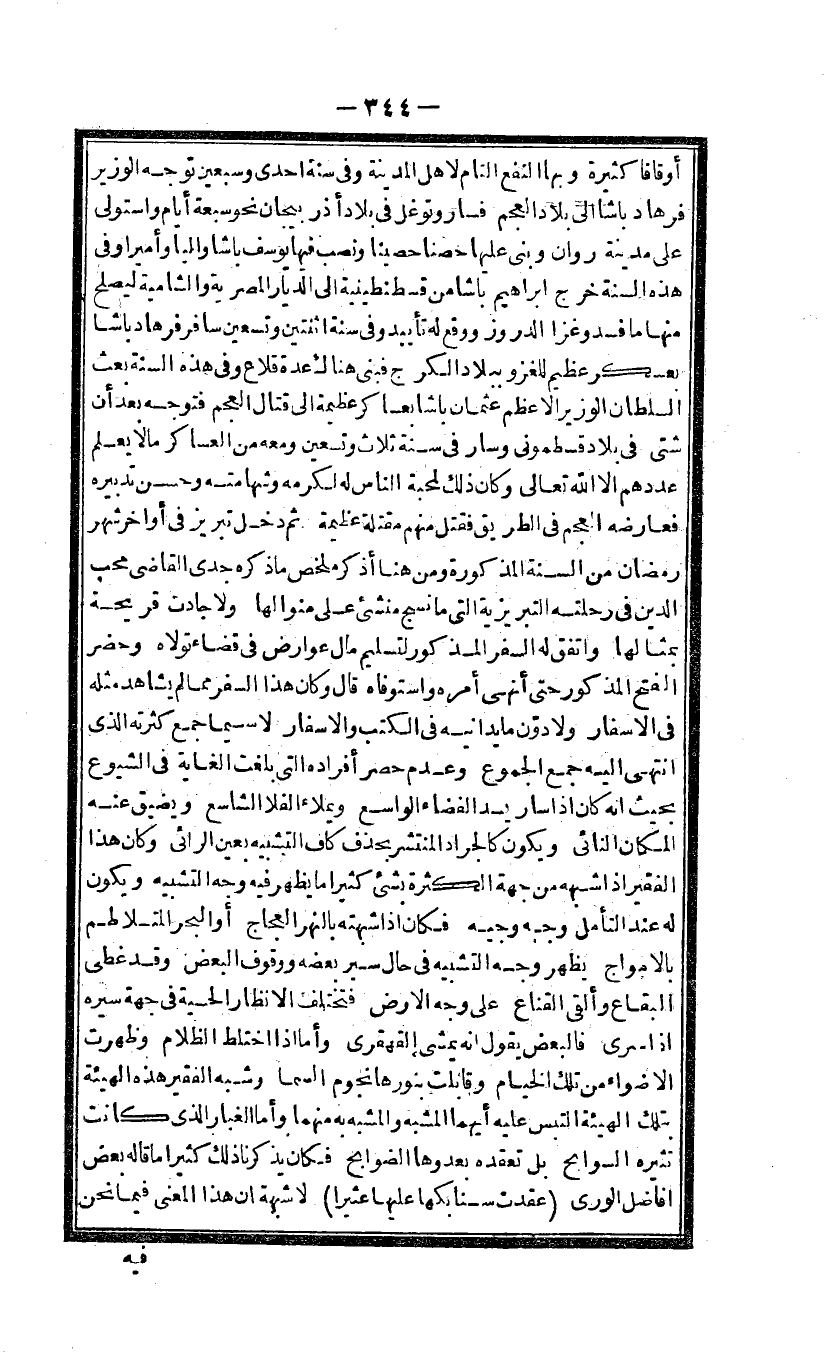 — ٣٤٤ —
أوقافا كثيرة وبها النفع التام لاهل المدينة وفى سنة احدى وسبعين توجه الوزير
فرهاد باشا الى بلاد العجم فسار وتوغل فى بلاد أذربيجان نحو سبعة أيام واستولى
على مدينة روان وبنى عليها حصنا حصينا ونصب فيها يوسف باشا واليا وأميرا وفى
هذه السنة خرج ابراهيم باشا من قسطنطينية الى الديار المصرية والشامية ليصلح
منها ما فسد وغزا الدروز ووقع له تأييد وفى سنة اثنتين وتسعين سافر فرهاد باشا
بعسكر عظيم للغزو ببلاد الكرج فبنى هنالك عدة قلاع وفى هذه السنة بعث
السلطان الوزير الاعظم عثمان باشا بعساكر عظيمة الى قتال العجم فتوجه بعد أن
شتى فى بلاد قسطمونى وسار فى سنة ثلاث وتسعين ومعه من العساكر مالا يعلم
عددهم الا الله تعالى وكان ذلك لمحبة الناس له لكرمه وشهامته وحسن تدبيره
فعارضه العجم فى الطريق فقتل منهم مقتلة عظيمة ثم دخل تبريز فى أواخر شهر
رمضان من السنة المذكورة ومن هنا أذكر ملخص ماذكره جدى القاضى محب
الدين فى رحلته التبريزية التى ما نسج منشئ على منوالها ولا جادت قريحة
بمثالها واتفق له السفر المذكور لتسليم مال عوارض فى قضاء تولاه وحضر
الفتح المذكور حتى أنهى أمره واستوفاه قال وكان هذا السفر مما لم يشاهد مثله
فى الاسفار ولا دوّن ما يدانيه فى الكتب والاسفار لا سيما جمع كثرته الذى
انتهى اليه جمع الجموع وعدم حصر أفراده التى بلغت الغاية فى الشيوع
بحيث انه كان اذا سار يسد الفضاء الواسع ويملاء الفلا الشاسع ويضيق عنه
المكان النائى ويكون كالجراد المنتشر بحذف كاف التشبيه بعين الرائى وكان هذا
الفقير اذا شبهه من جهة الكثرة بشئ كثيرا ما يظهر فيه وجه التشبيه ويكون
له عند التأمل وجه وجيه فكان اذا شبهته بالنهر العجاج أو البحر المتلاطم
بالامواج يظهر وجه التشبيه فى حال سير بعضه ووقوف البعض وقد غطى
البقاع وألقى القناع على وجه الارض فتختلف الانظار الحسية فى جهة سيره
اذا سرى فالبعض يقول انه يمشى القهقرى وأما اذا اختلط الظلام وظهرت
الاضواء من تلك الخيام وقابلت بنورها نجوم السما وشبه الفقير هذه الهيئة
بتلك الهيئة التبس عليه أيهما المشبه والمشبه به منهما وأما الغبار الذى كانت
تثيره السوابح بل تعقده بعدوها الضوابح فكان يذكرنا ذلك كثيرا ما قاله بعض
افاضل الورى (عقدت سنابكها عليها عثيرا) لا شبهة ان هذا المعنى فيما نحن
فيه